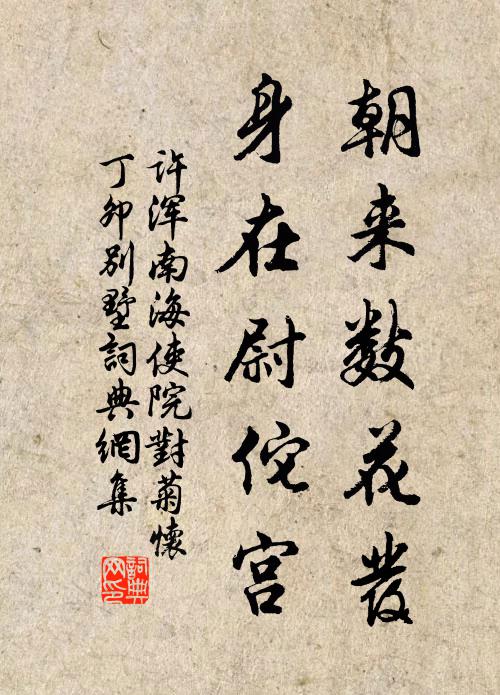 朝来数花發
身在尉佗宫
许浑南海使院對菊懷
丁卯別墅詞典網集
詞典网印